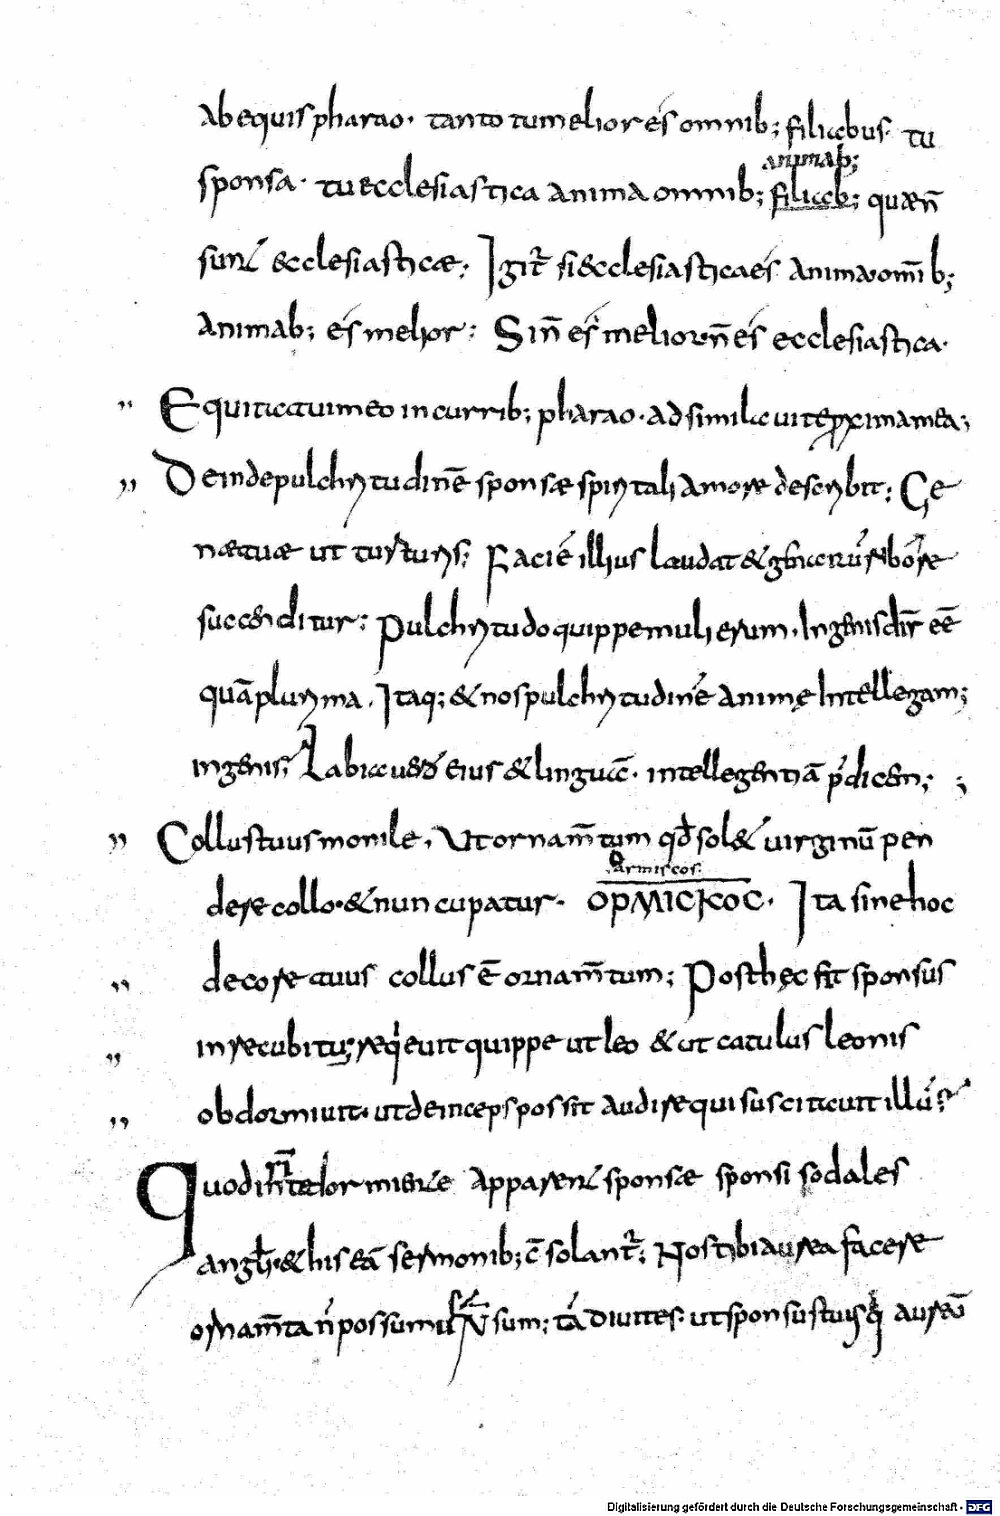 ab equis pharao. tanto tu melior és omnib; filiabus. tu
animab;
sponsa. tu ecclesiastica anima omnib; filiab; quæ n̄
sunt ecclesiasticæ; Igit̄ si ecclesiastica és anima om̄ib;
animab; és melior; Si n̄ és meliora n̄ és ecclesiastica.
Equitatui meo in currib; pharao. adsimilaui te ꝓxima mea;
Deinde pulchritudinē sponsæ spiritali amore describit; Ge
næ tuæ ut turturis; Faciē illius laudat & genarū rubore
succenditur; Pulchritudo quippe mulierum. In genis dr̄ eē
quā plurima. Itaq; & nos pulchritudinē animę intellegam;
in genis; Labia uero eius & linguā. intellegentiā p̄dicem;
Collus tuus monile. Ut ornam̄tum qd̄ solet uirginū pen
ormiscos.
dere collo. & nuncupatur. ΟΡΜΙCΚΟC. Ita sine hoc
decore tuus collus ē ornam̄tum; Post hęc fit sponsus
in recubitu; requieuit quippe ut leo & ut catulus leonis
obdormiuit. ut deinceps possit audire qui suscitauit illū?
Quo dormiente apparent sponsæ sponsi sodales
angli. & his eā sermonib; c̄solant̄; Nos tibi aurea facere
ornam̄ta n̄ possum; sum; tā diuites. ut sponsus tuus qui aureū
Digitalisierung gefördert durch die Deutsche Forschungsgemeinschaft - DFG